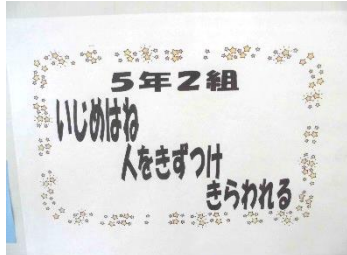 5年2組
いじめはね
人をきずつけ
きらわれる